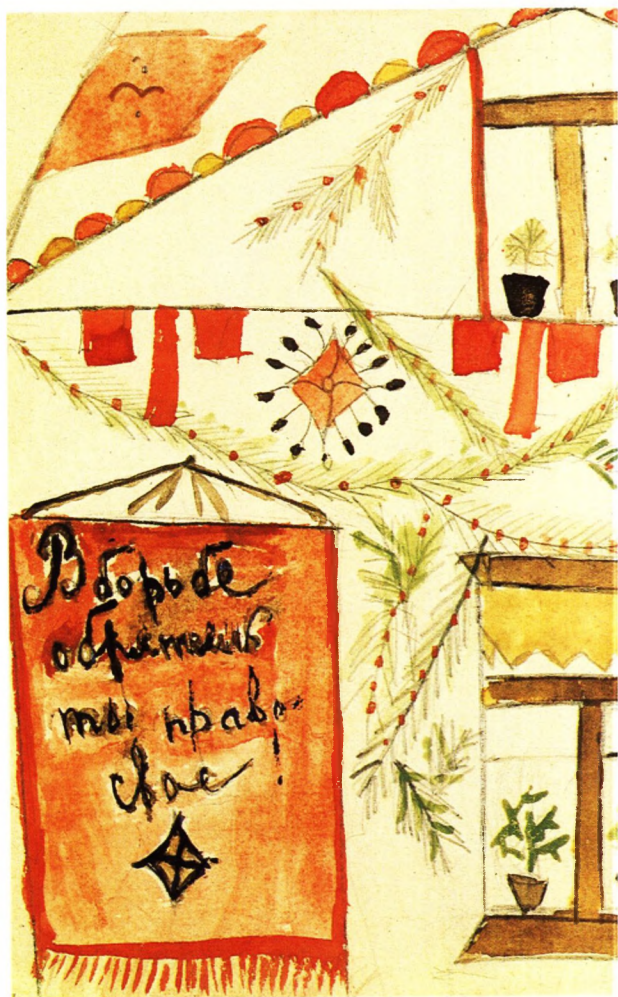 В борьбе
обретешь
ты право
свое!